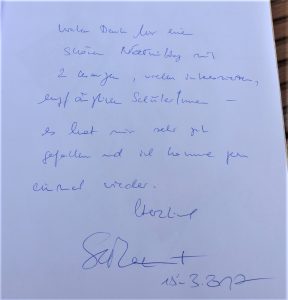 Vielen Dank für einen
schönen Nachmittag mit
2 langen, vielen interessierten,
empfänglichen SchülerInnen –
es hat mir sehr gut
gefallen und ich komme gern
einmal wieder.
Herzlich
15.3.2017